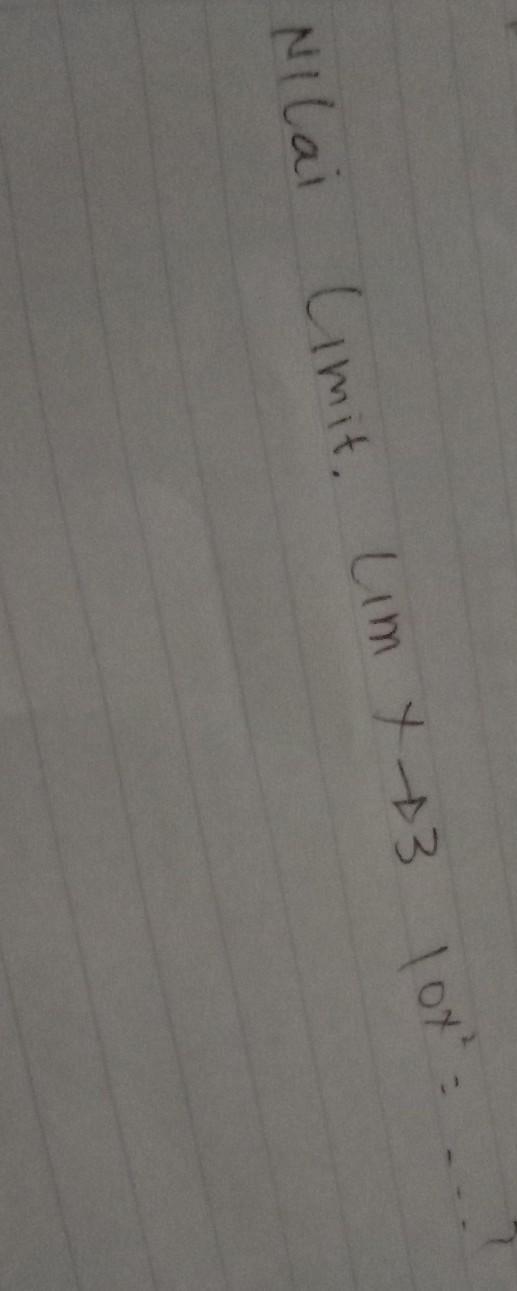 Nilai Limit. Lim x→3 10x² = ....?